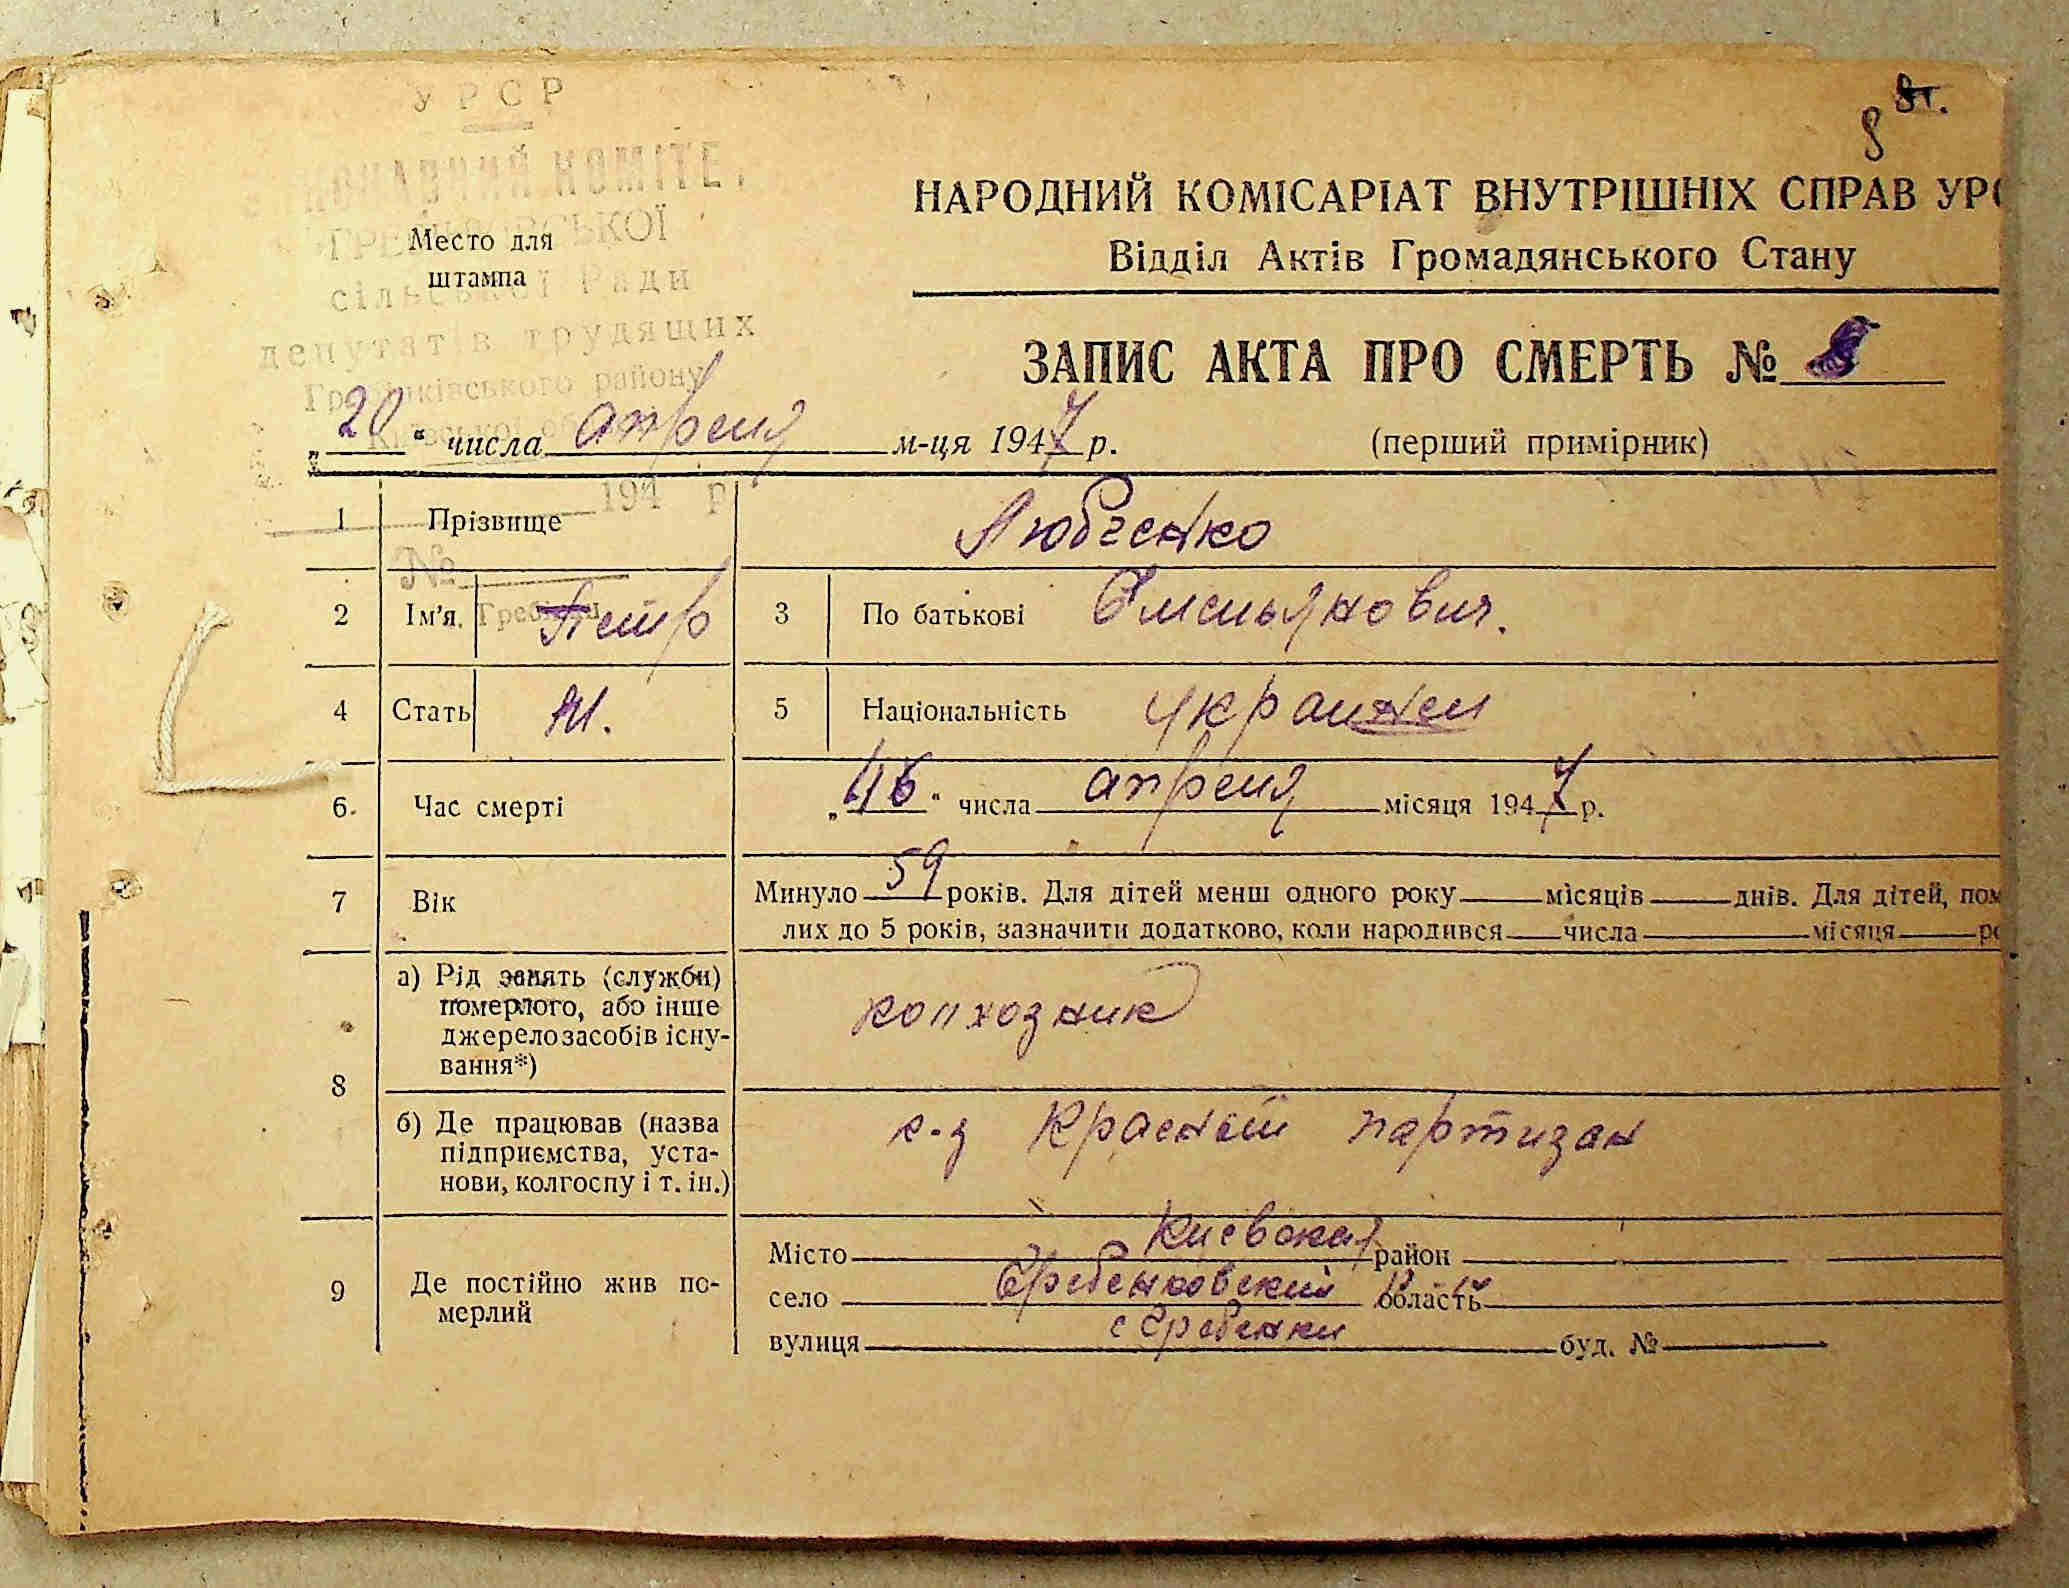 УРСР
ВИКОНАВЧИЙ КОМІТЕТ
ГРЕБІНКІВСЬКОЇ
сільської Ради
депутатів трудящих
Гребінківського району
Київської області
194 р
№
Гребінки
Место для
штампа
8
НАРОДНИЙ КОМІСАРІАТ ВНУТРІШНІХ СПРАВ УРС
Відділ Актів Громадянського Стану
ЗАПИС АКТА ПРО СМЕРТЬ №
„20“ числа апреля м-ця 1947 р.
(перший примірник)
1 Прізвище Любченко
2 Ім'я. Петр 3 По батькові Емельянович.
4 Стать М. 5 Національність украинец
6. Час смерті „16“ числа апреля місяця 1947 р.
7 Вік Минуло 59 років. Для дітей менш одного року місяців днів. Для дітей, пом
лих до 5 років, зазначити додатково, коли народився числа місяця ро
8 а) Рід занять (служби)
померлого, або інше
джерело засобів існу-
вання*)
колхозник
б) Де працював (назва
підприємства, уста-
нови, колгоспу і т. ін.)
к-з Красный партизан
9 Де постійно жив по-
мерлий
Місто Киевская район
село Гребенковский область
вулиця с Гребенки буд. №